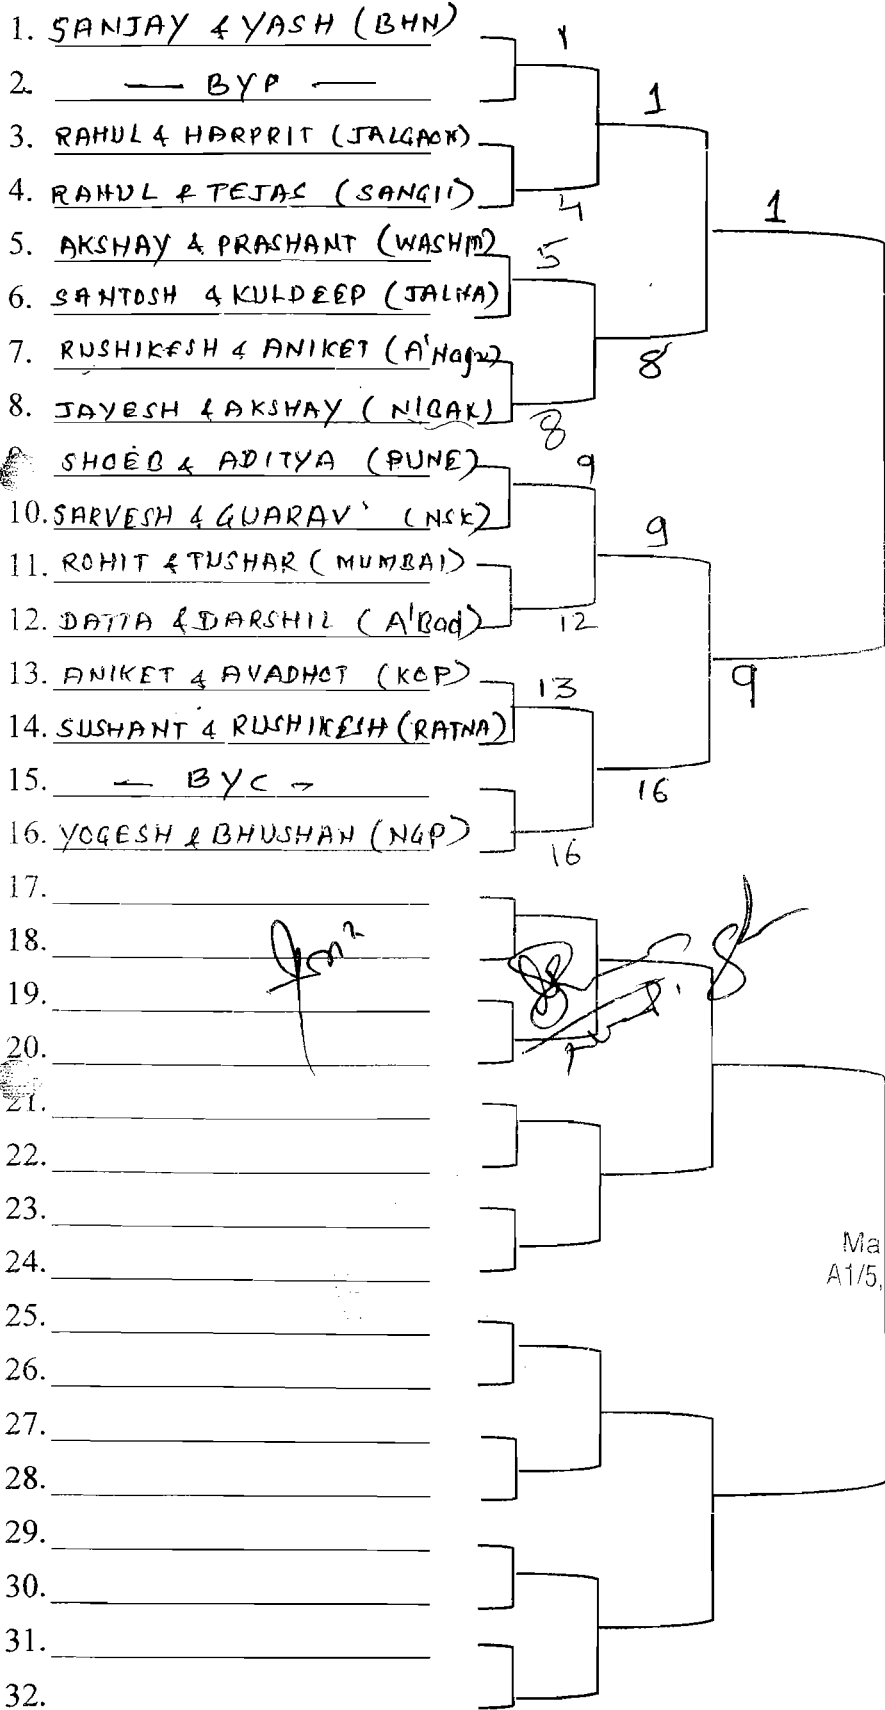 1. SANJAY & YASH (BHN)
1
2. — BYE —
1
3. RAHUL & HARPRIT (JALGAON)
4. RAHUL & TEJAS (SANGLI)
4
1
5. AKSHAY & PRASHANT (WASHM)
5
6. SANTOSH & KULDEEP (JALNA)
7. RUSHIKESH & ANIKET (A'Nagr)
8
8. JAYESH & AKSHAY (N/BAK)
8
SHOEB & ADITYA (PUNE)
9
10. SARVESH & GUARAV (NSK)
9
11. ROHIT & TUSHAR (MUMBAI)
12. DATTA & DARSHIL (A'Bad)
12
13. ANIKET & AVADHOT (KOP)
13
9
14. SUSHANT & RUSHIKESH (RATNA)
15. — BYE —
16
16. YOGESH & BHUSHAN (NGP)
16
17.
18.
19.
20.
21.
22.
23.
Ma
24.
A1/5,
25.
26.
27.
28.
29.
30.
31.
32.